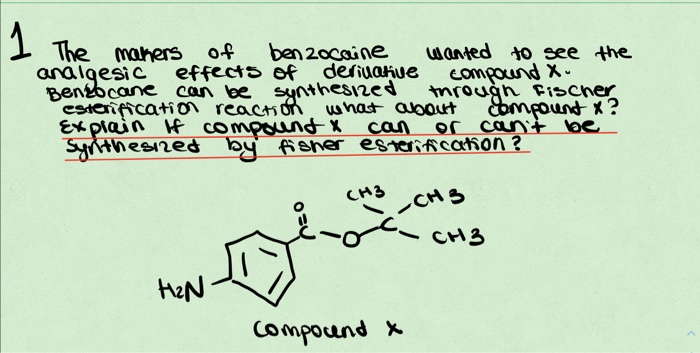 1 The makers of benzocaine wanted to see the
analgesic effects of derivative compound X.
Benzocane can be synthesized through Fischer
esterification reaction what about compound x?
Explain if compound x can or can't be
synthesized by fisher esterification?
CH3
CH3
O
C-O-C
CH3
H2N
compound x